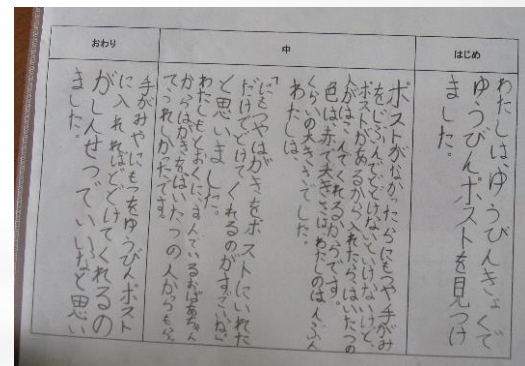 はじめ
わたしは、ゆうびんきょくで
ゆうびんポストを見つけ
ました。
中
ポストがなかったらにもつや手がみ
をじぶんでとどけないといけないけど、
ポストがあるから入れたらはいたつの
人がはこんでくれるからです。
色は、赤で大きさは、わたしのはんぶん
くらいの大きさでした。
わたしは、
「にもつやはがきをポストにいれた
だけでとどけてくれるのがすごいね」
と思いました。
わたしもとおくにすんでいるおばあちゃん
からはがきをはいたつの人からもらっ
てうれしかったです。
おわり
手がみやにもつをゆうびんポスト
に入れればとどけてくれるの
がしんせつでいいなと思い
ました。